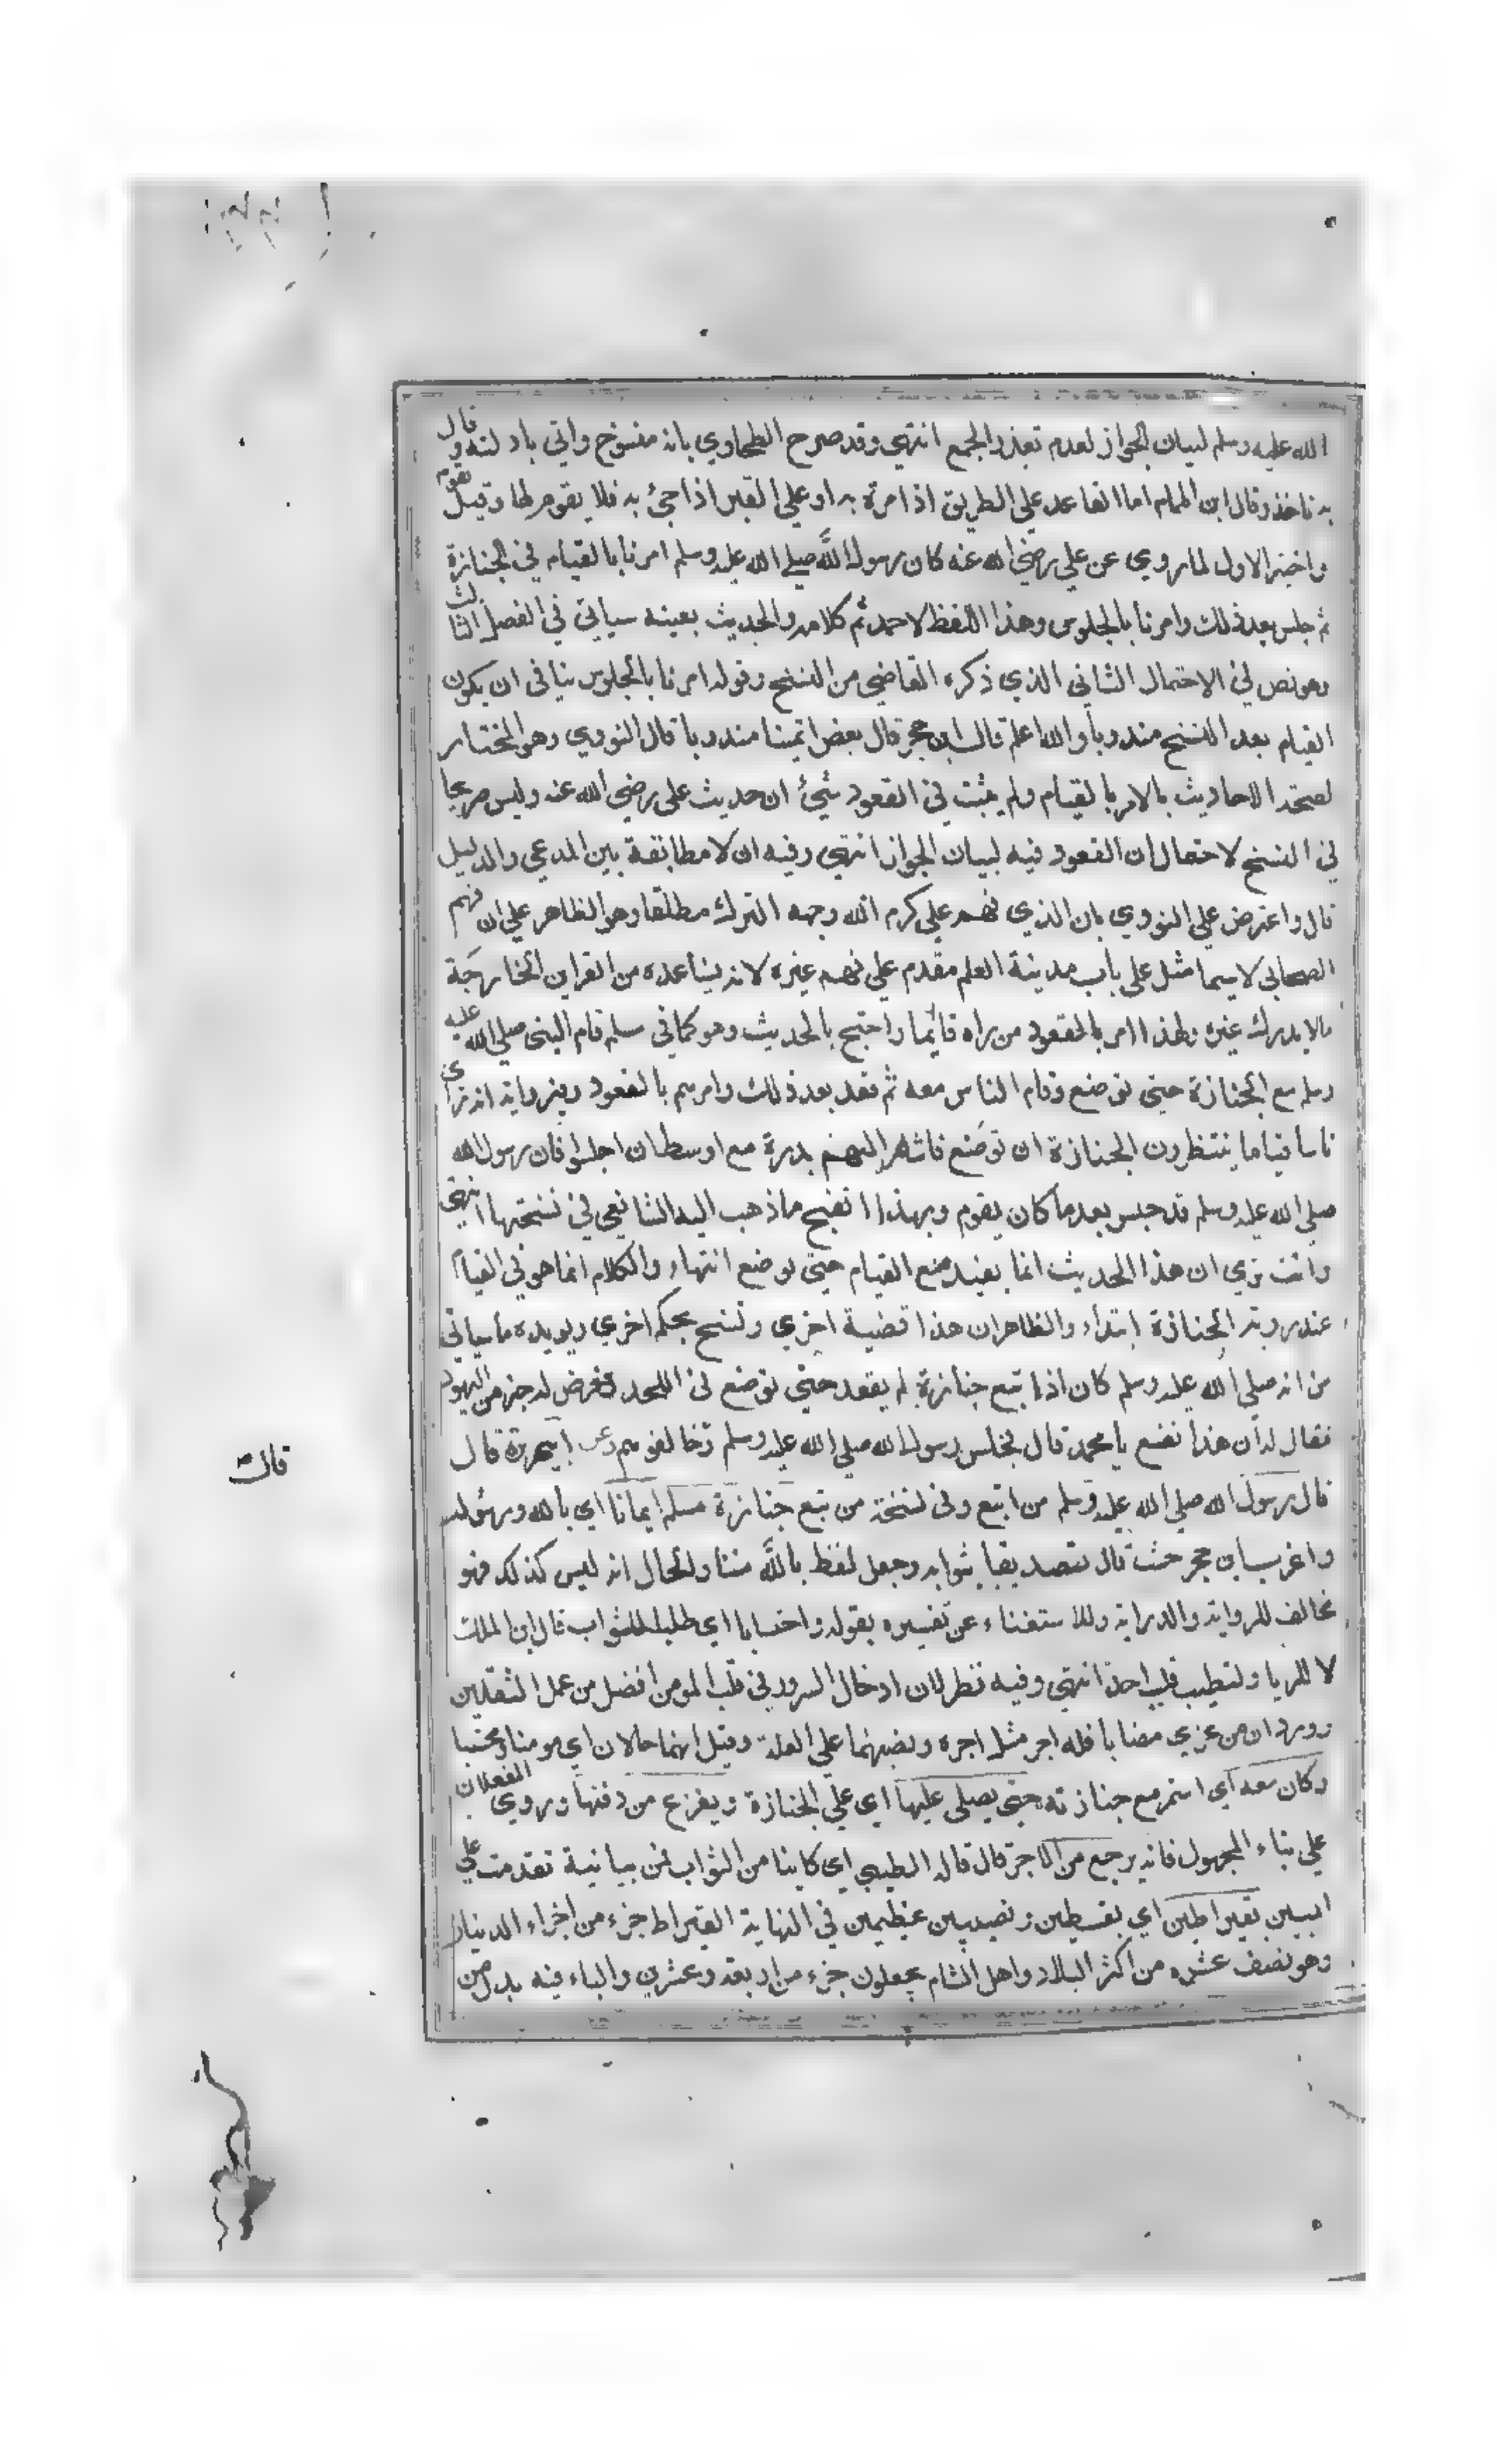 الله عليه وسلم لبيان الجواز لعدم تعذر الجمع انتهي وقد صرح الطحاوي بانه منسوخ واتي بادلته وقال
به ناخذ وقال ابن الهمام اما القاعد علي الطريق اذا مرة به او علي القبر اذا جئ به فلا يقوم لها وقيل يقوم
واختير الاول لما روي عن علي رضي الله عنه كان رسول الله صلي الله عليه وسلم امرنا بالقيام في الجنازة
ثم جلس بعد ذلك وامرنا بالجلوس وهذا اللفظ لاحمد ثم كلامه والحديث بعينه سياتي في الفصل الثالث
وهو نص في الاحتمال الثاني الذي ذكره القاضي من النسخ وقوله امرنا بالجلوس ينافي ان يكون
القيام بعد النسخ مندوبا والله اعلم قال ابن حجر قال بعض ائمتنا مندوبا قال النووي وهو المختار
لصحة الاحاديث بالامر بالقيام ولم يثبت في القعود شئ ان حديث علي رضي الله عنه وليس صريحا
في النسخ لاحتمال ان القعود فيه لبيان الجواز انتهي وفيه ان لا مطابقة بين المدعي والدليل
قال واعترض علي النووي بان الذي فهمه علي كرم الله وجهه الترك مطلقا وهو الظاهر علي ان فهم
الصحابي لاسيما مثل علي باب مدينة العلم مقدم علي فهم غيره لانه يساعده من القراين الخارجة
مالا يدرك غيره ولهذا امر بالقعود من راه قائما واحتج بالحديث وهو كما في مسلم قام النبي صلي الله عليه
وسلم مع الجنازة حتي توضع وقام الناس معه ثم قعد بعد ذلك وامرهم بالقعود وفي رواية انه راي
ناسا قياما ينتظرون الجنازة ان توضع فاشار اليهم بدرة مع اوسط ان اجلسوا فان رسول الله
صلي الله عليه وسلم قد جلس بعد ما كان يقوم وبهذا اتضح ما ذهب اليه الشافعي في نسختها انتهي
وانت تري ان هذا الحديث انما يفيد منع القيام حتي توضع انتهاء والكلام انما هو في القيام
عند روية الجنازة ابتداء والظاهر ان هذا قضية اخري ونسخ بحكم اخري ويويده ما سياتي
من انه صلي الله عليه وسلم كان اذا تبع جنازة لم يقعد حتي توضع في اللحد فعرض له حبر من اليهود
فقال له ان هذا نصنع يا محمد قال فجلس رسول الله صلي الله عليه وسلم وقال خالفوهم وعن ابي هريرة قال
قال رسول الله صلي الله عليه وسلم من اتبع وفي نسخة من تبع جنازة مسلم ايمانا اي بالله ورسوله
واغرب ابن حجر حيث قال تصديقا بثوابه وجعل لفظ بالله متنا والحال انه ليس كذلك فهو
مخالف للرواية والدراية وللاستغناء عن تفسيره بقوله واحتسابا اي طلبا للثواب قال ابن الملك
لا للريا ولتطيب قلب احد انتهي وفيه نظر لان ادخال السرور في قلب المومن افضل من عمل الثقلين
وورد ان من عزي مصابا فله اجر مثل اجره ونصبهما علي العلة وقيل انهما حالان اي مومنا ومحتسبا
وكان معه اي استمر مع جنازته حتي يصلي عليها اي علي الجنازة ويفرغ من دفنها وروي الفعلان
علي بناء المجهول فانه يرجع من الاجر قال قال الطيبي اي كاينا من الثواب فمن بيانية تقدمت علي
المبين بقيراطين اي بقسطين ونصيبين عظيمين في النهاية القيراط جزء من اجزاء الدينار
وهو نصف عشره من اكثر البلاد واهل الشام يجعلون جزء من اربعة وعشرين والياء فيه بدل من
قال